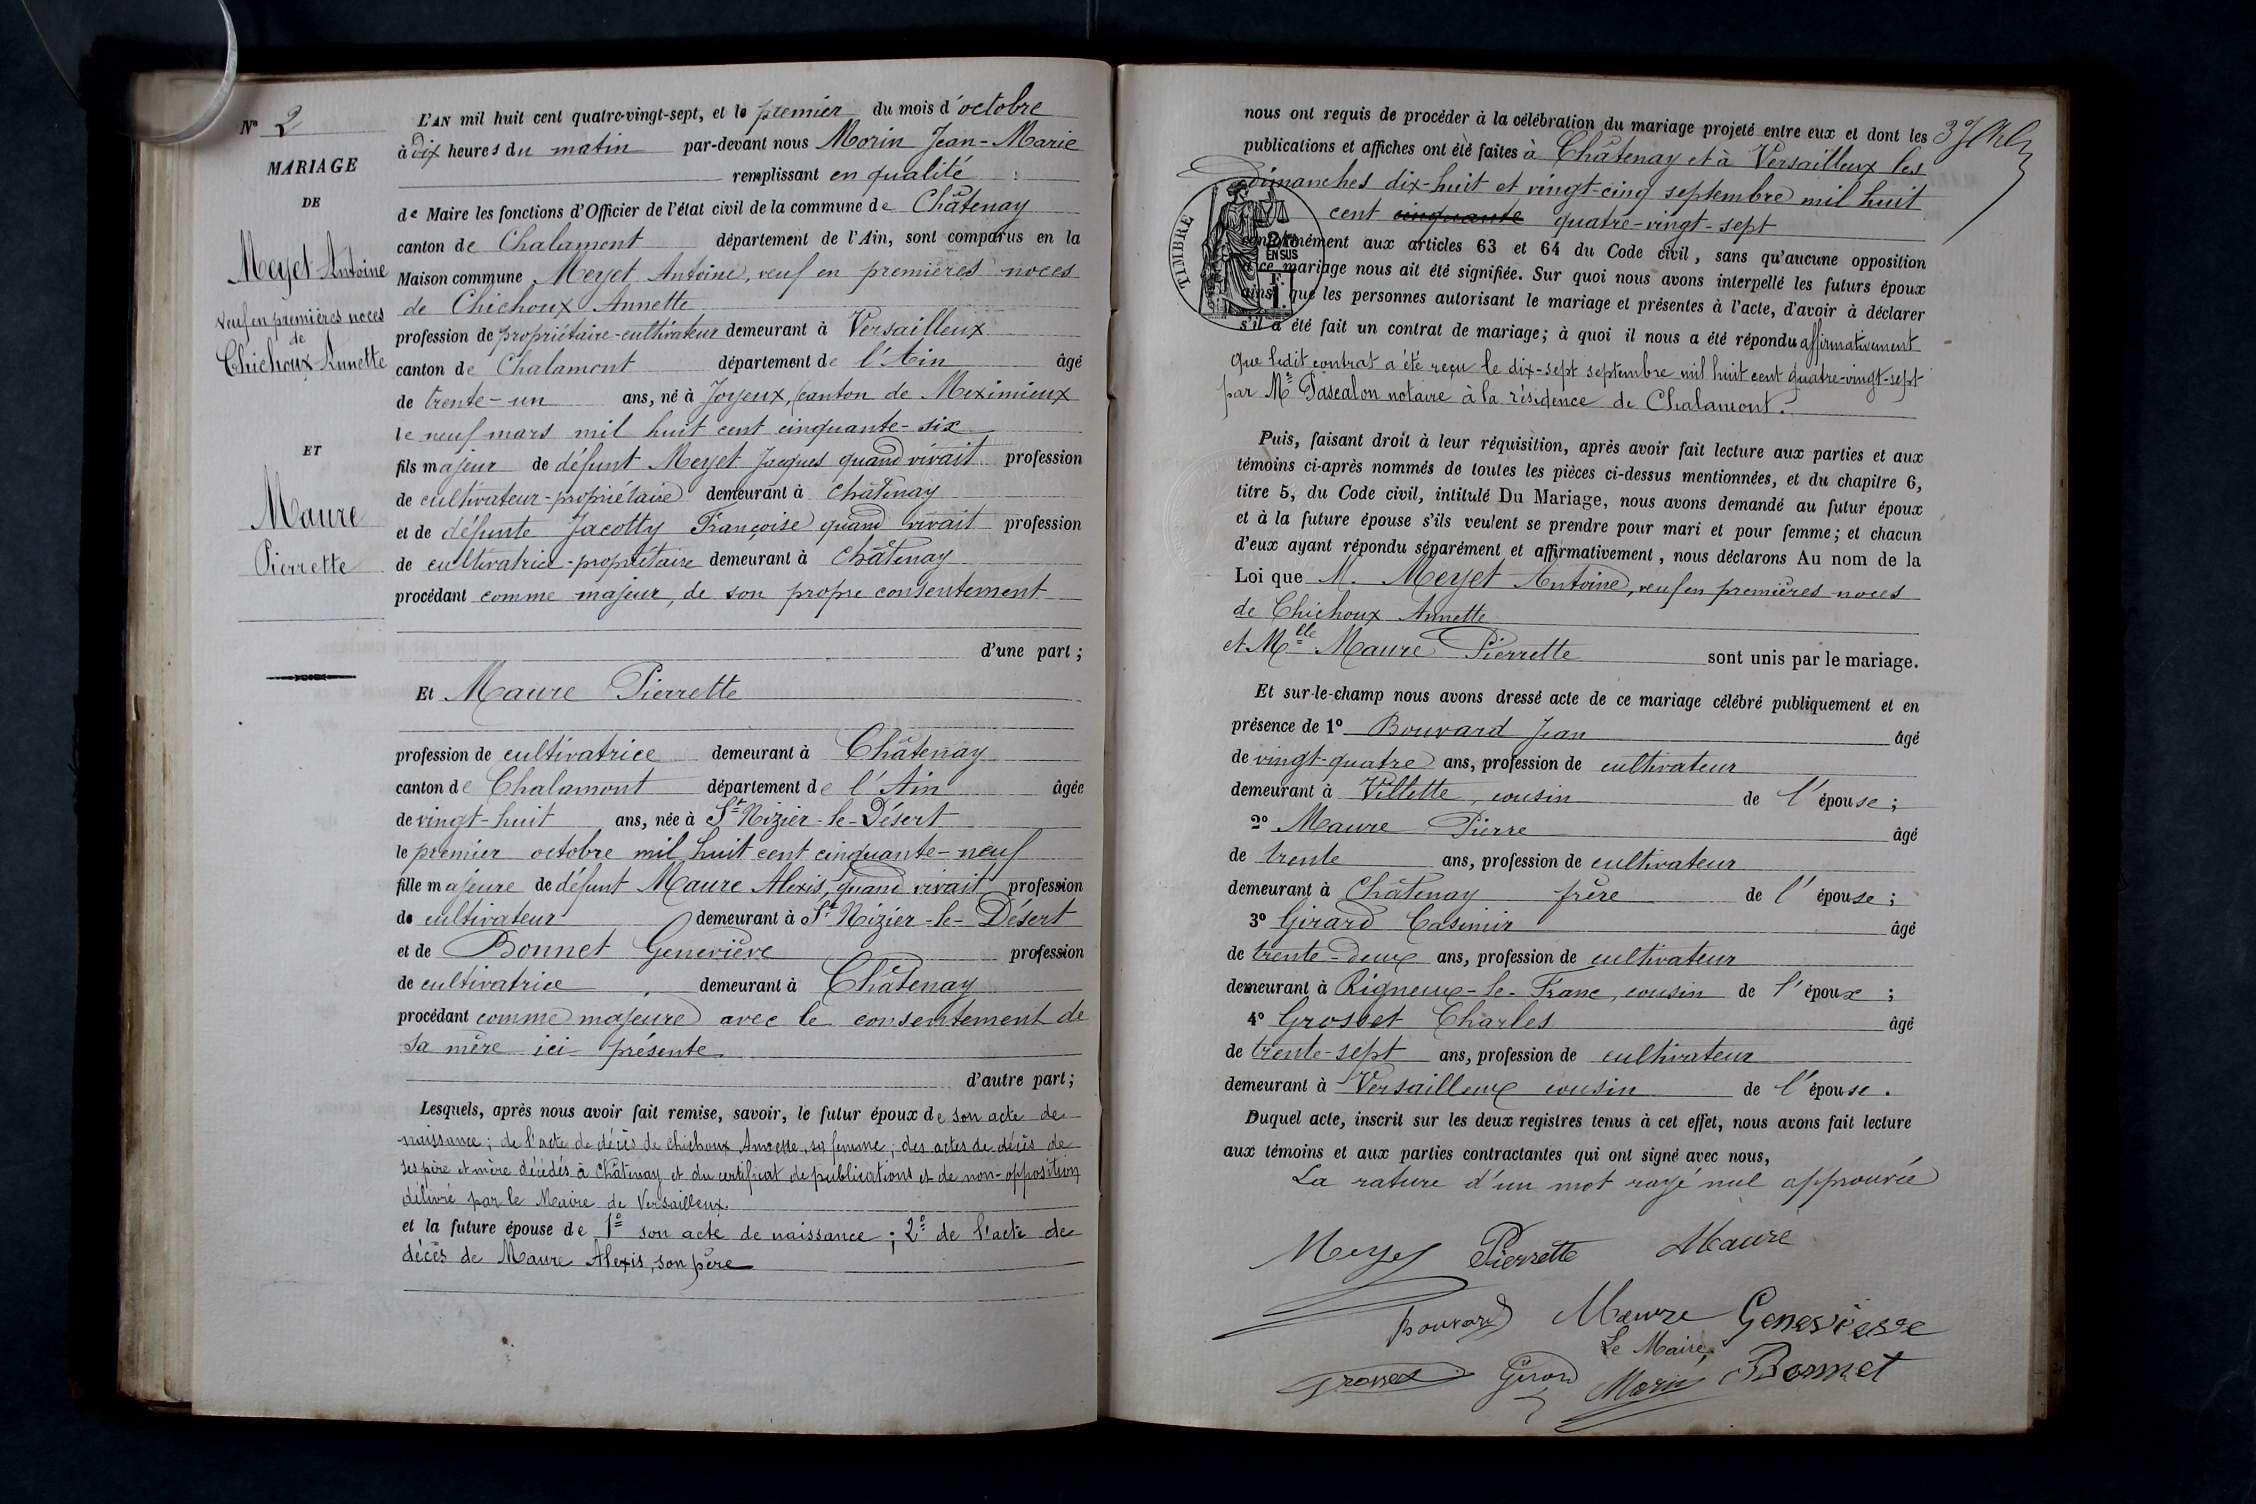 N° 2
MARIAGE
DE
Meyet Antoine
veuf en premières noces
de
Chichoux Annette
ET
Maure
Pierrette
L'AN mil huit cent quatre-vingt-sept, et le premier du mois d'octobre
à dix heures du matin par-devant nous Morin Jean-Marie
remplissant en qualité
de Maire les fonctions d'Officier de l'état civil de la commune de Châtenay
canton de Chalamont département de l'Ain, sont comparus en la
Maison commune Meyet Antoine, veuf en premières noces
de Chichoux Annette
profession de propriétaire-cultivateur demeurant à Versailleux
canton de Chalamont département de l'Ain âgé
de trente-un ans, né à Joyeux, (canton de Meximieux
le neuf mars mil huit cent cinquante-six
fils majeur de défunt Meyet Jacques quand vivait profession
de cultivateur-propriétaire demeurant à Châtenay
et de défunte Jacotty Françoise quand vivait profession
de cultivatrice-propriétaire demeurant à Châtenay
procédant comme majeur, de son propre consentement
d'une part ;
Et Maure Pierrette
profession de cultivatrice demeurant à Châtenay
canton de Chalamont département de l'Ain âgée
de vingt-huit ans, née à St Nizier-le-Désert
le premier octobre mil huit cent cinquante-neuf
fille majeure de défunt Maure Alexis, quand vivait profession
de cultivateur demeurant à St Nizier-le-Désert
et de Bonnet Geneviève profession
de cultivatrice demeurant à Châtenay
procédant comme majeure avec le consentement de
sa mère ici présente
d'autre part ;
Lesquels, après nous avoir fait remise, savoir, le futur époux de son acte de
naissance ; de l'acte de décès de Chichoux Annette, sa femme ; des actes de décès de
ses père et mère décédés à Châtenay et du certificat de publications et de non-opposition
délivré par le Maire de Versailleux.
et la future épouse de 1° son acte de naissance ; 2° de l'acte de
décès de Maure Alexis, son père
nous ont requis de procéder à la célébration du mariage projeté entre eux et dont les
publications et affiches ont été faites à Châtenay et à Versailleux les
dimanches dix-huit et vingt-cinq septembre mil huit
cent cinquante quatre-vingt-sept
TIMBRE
EN SUS
conformément aux articles 63 et 64 du Code civil, sans qu'aucune opposition
à ce mariage nous ait été signifiée. Sur quoi nous avons interpellé les futurs époux
ainsi que les personnes autorisant le mariage et présentes à l'acte, d'avoir à déclarer
s'il a été fait un contrat de mariage ; à quoi il nous a été répondu affirmativement
que ledit contrat a été reçu le dix-sept septembre mil huit cent quatre-vingt-sept
par Me Pascalon notaire à la résidence de Chalamont.
Puis, faisant droit à leur réquisition, après avoir fait lecture aux parties et aux
témoins ci-après nommés de toutes les pièces ci-dessus mentionnées, et du chapitre 6,
titre 5, du Code civil, intitulé Du Mariage, nous avons demandé au futur époux
et à la future épouse s'ils veulent se prendre pour mari et pour femme ; et chacun
d'eux ayant répondu séparément et affirmativement, nous déclarons Au nom de la
Loi que M. Meyet Antoine, veuf en premières noces
de Chichoux Annette
et Mlle Maure Pierrette sont unis par le mariage.
Et sur-le-champ nous avons dressé acte de ce mariage célébré publiquement et en
présence de 1° Bouvard Jean âgé
de vingt-quatre ans, profession de cultivateur
demeurant à Villette, cousin de l'épouse ;
2° Maure Pierre âgé
de trente ans, profession de cultivateur
demeurant à Châtenay frère de l'épouse ;
3° Girard Casimir âgé
de trente-deux ans, profession de cultivateur
demeurant à Rigneux-le-Franc, cousin de l'époux ;
4° Grosset Charles âgé
de trente-sept ans, profession de cultivateur
demeurant à Versailleux cousin de l'épouse.
Duquel acte, inscrit sur les deux registres tenus à cet effet, nous avons fait lecture
aux témoins et aux parties contractantes qui ont signé avec nous,
La rature d'un mot rayé nul approuvée
Meyet Pierrette Maure
Bouvard Maure Genevieve
Le Maire,
Grosset Girard Morin Bonnet